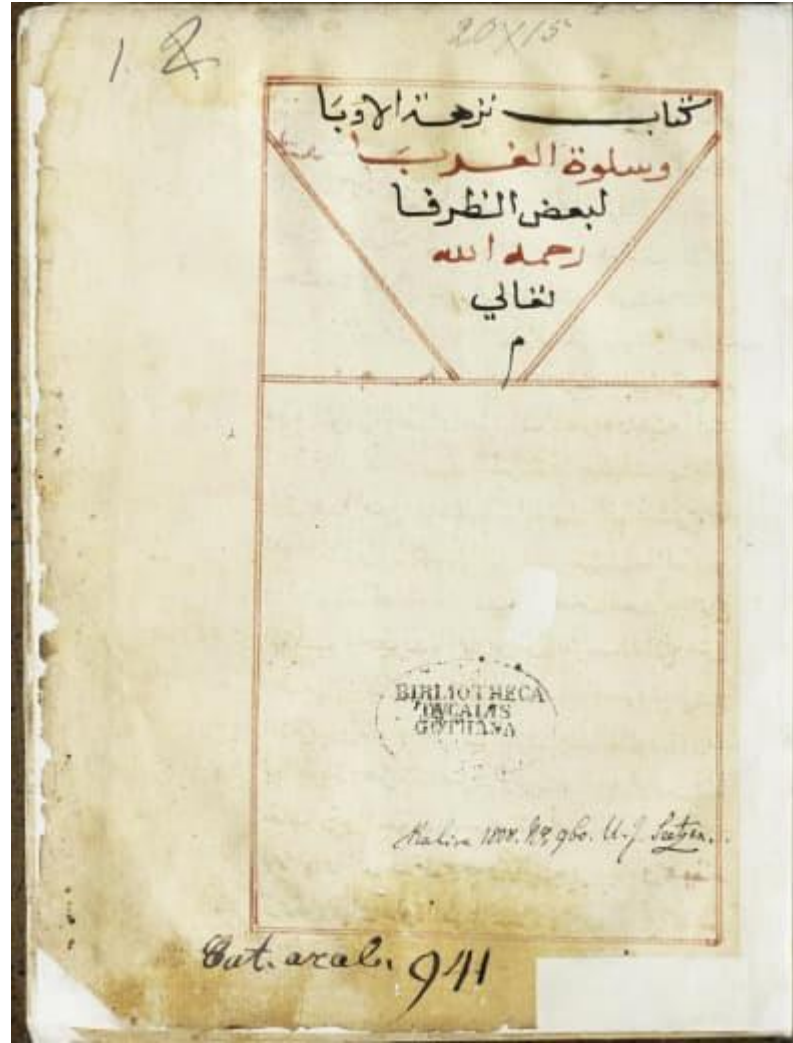 1. 2
20X15
كتاب نزهة الادبا
وسلوة الغربا
لبعض الظرفا
رحمه الله
تعالي
م
BIBLIOTHECA
DVCALIS
GOTHANA
Kahira 1808. No. 960. U. J. Seetzen.
Cat. arab. 941